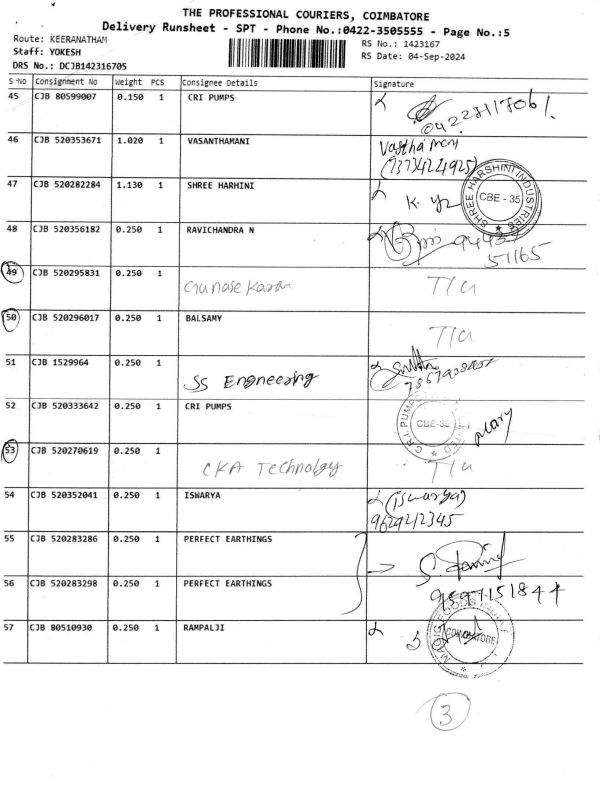 THE PROFESSIONAL COURIERS, COIMBATORE
Delivery Runsheet - SPT - Phone No.:0422-3505555 - Page No.:5
Route: KEERANATHAM
RS No.: 1423167
Staff: YOKESH
RS Date: 04-Sep-2024
DRS No.: DCJB142316705
S No Consignment No Weight PCS Consignee Details Signature
45 CJB 80599007 0.150 1 CRI PUMPS
46 CJB 520353671 1.020 1 VASANTHAMANI
47 CJB 520282284 1.130 1 SHREE HARHINI
SHREE HARSHINI INDUSTRIES
CBE - 35
48 CJB 520356182 0.250 1 RAVICHANDRA N
51165
49 CJB 520295831 0.250 1 Gunasekaran T/u
50 CJB 520296017 0.250 1 BALSAMY T/u
51 CJB 1529964 0.250 1 SS Engneering
52 CJB 520333642 0.250 1 CRI PUMPS
CBE-35
Mary
53 CJB 520270619 0.250 1 CKA Technolgy T/u
54 CJB 520352041 0.250 1 ISWARYA (Iswarya)
9629212345
55 CJB 520283286 0.250 1 PERFECT EARTHINGS
56 CJB 520283298 0.250 1 PERFECT EARTHINGS
57 CJB 80510930 0.250 1 RAMPALJI
COIMBATORE
3